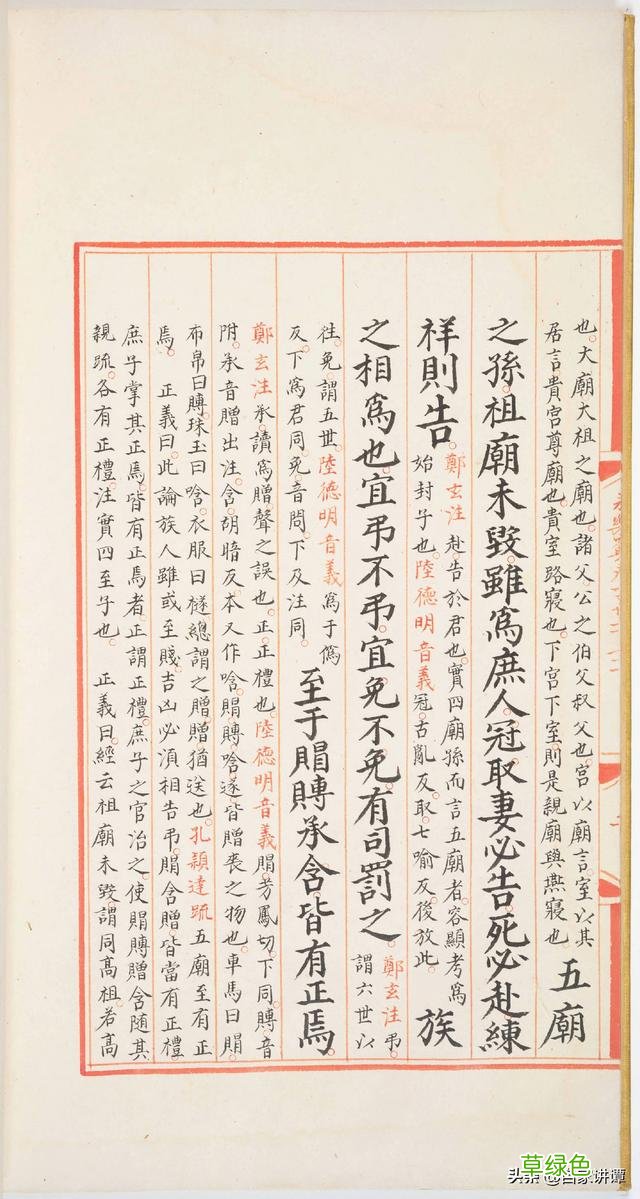 也。大廟大祖之廟也。諸父公之伯父叔父也。宮以廟言。室以其
居言。貴宮尊廟也。貴室路寢也。下宮下室。則是親廟與燕寢也
五廟
之孫。祖廟未毀。雖為庶人。冠取妻必告。死必赴。練
祥則告。
鄭玄注 赴告於君也。實四廟孫而言五廟者。容顯考為
始封子也。陸德明音義 冠古亂反。取七喻反。後放此。
族
之相為也。宜弔不弔。宜免不免。有司罰之。
鄭玄注 弔。
謂六世以
往。免謂五世。陸德明音義 為于偽
反。下為君同。免音問。下及注同。
至于賵賻承含。皆有正焉。
鄭玄注 承讀為贈聲之誤也。正正禮也。陸德明音義 賵芳鳳切。下同。賻音
附。承音贈出注。含胡暗反。本又作唅。賵賻唅襚。皆贈喪之物也。車馬曰賵。
布帛曰賻。珠玉曰唅。衣服曰襚。總謂之贈。贈猶送也。孔穎達疏 五廟至有正
焉。 正義曰。此論族人雖或至賤。吉凶必須相告。弔賵含贈。皆當有正禮。
庶子掌其正焉。皆有正焉者。正謂正禮。庶子之官治之。使賵賻贈含隨其
親疏。各有正禮。注實四至子也。 正義曰。經云祖廟未毀。謂同高祖。若高
草绿色
头条 @百家讲谭